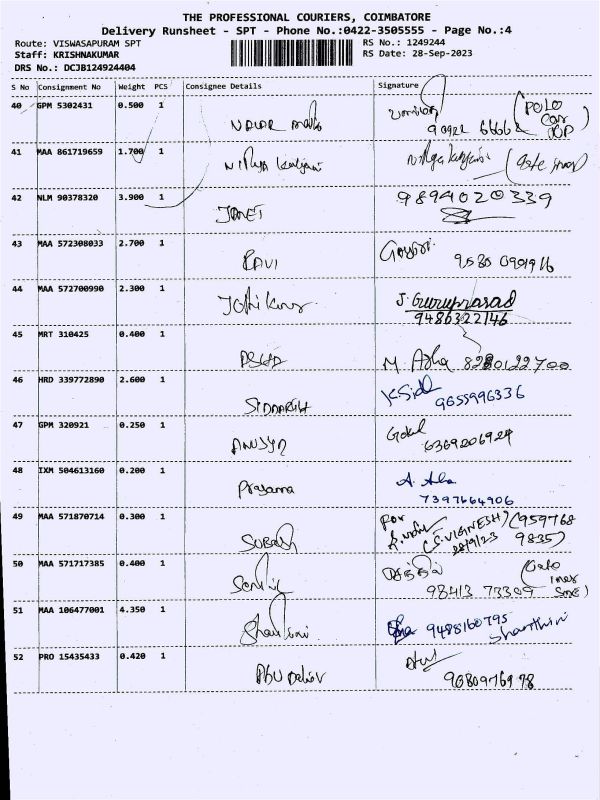 THE PROFESSIONAL COURIERS, COIMBATORE
Delivery Runsheet - SPT - Phone No.:0422-3505555 - Page No.:4
Route: VISWASAPURAM SPT
Staff: KRISHNAKUMAR
DRS No.: DCJB124924404
RS No.: 1249244
RS Date: 28-Sep-2023
S No Consignment No Weight PCS Consignee Details Signature
40 GPM 5302431 0.500 1
POLO
Car
41 MAA 861719659 1.700 1 Nithya Kalyani
42 NLM 90378320 3.900 1 JANET 9894020339
43 MAA 572308033 2.700 1 RAVI Gayatri
44 MAA 572700990 2.300 1 J. Guruprasad
9486322146
45 MRT 310425 0.400 1 M. Asha
46 HRD 339772890 2.600 1 SIDDARTH K Sidd
9655996336
47 GPM 320921 0.250 1 Gokul
6369206924
48 IXM 504613160 0.200 1 Prasanna
7397664906
49 MAA 571870714 0.300 1 SUBASH For
(S.VIGNESH) (959768
28/9/23 9835)
50 MAA 571717385 0.400 1 Senthil
98413 73309
51 MAA 106477001 4.350 1 9488160795
Shanthini
52 PRO 15435433 0.420 1